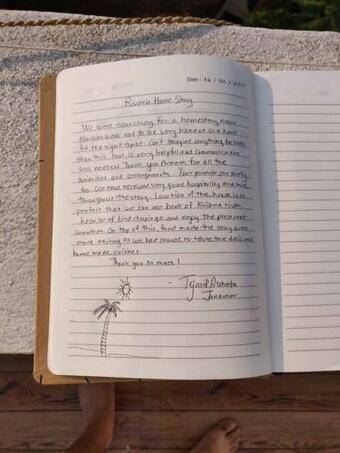 Date: 14 / 02 /
Riveria Home Stay
We were searching for a homestay near
Narsobawadi and to be very honest we have
hit the right spot. Can't imagine anything better
than this. Host is very helpful and communication
was excellent. Thank you for all the
amenities and arrangements. Your parents are lovely
to. Can have received very good hospitality and
throughout the stay. Location of the house is so
perfect that we can see bank of Krishna river,
hear lot of bird chirpings and enjoy the pleasant
weather. On top of this, food made the stay even
more exciting as we had chance to taste the delicious
home made cuisines.
Thank you so much!